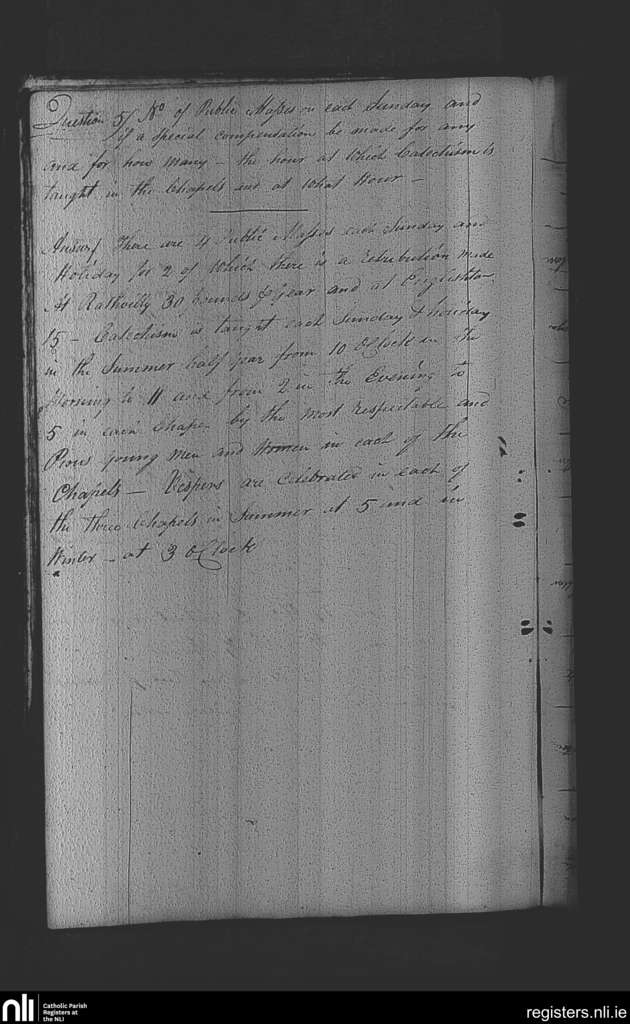 Question 5/ No of Public Masses on each Sunday and
If a Special compensation be made for any
and for how many – the hour at which Catechism is
taught in the Chapels and at what Hour –
Answr/ There are 4 Public Masses each Sunday and
Holiday for 2 of which there is a retribution made
At Rathvilly 30 Pounds Year and at
15 – Catechism is taught each Sunday & holiday
in the Summer half year from 10 OClock in the
Morning to 11 and from 2 in the Evening to
5 in each Chapel by the most respectable and
Pious young Men and Women in each of the
Chapels – Vespers are Celebrated in each of
the three Chapels in Summer at 5 and in
Winter – at 3 OClock
nli
Catholic Parish
Registers at
the NLI
registers.nli.ie